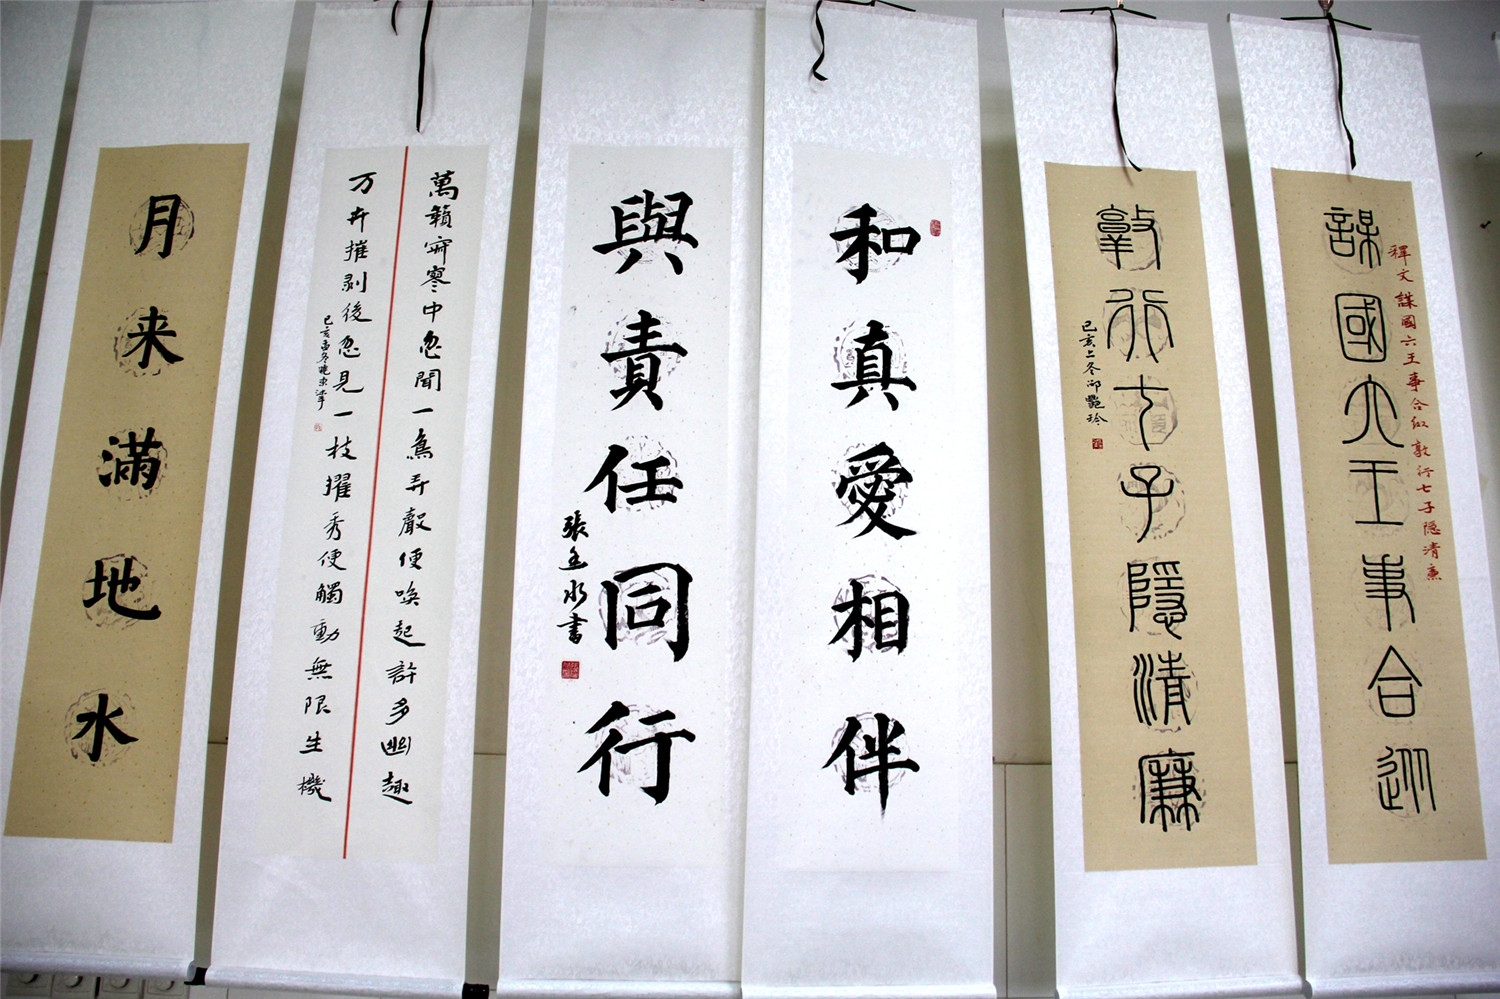 謀國六王事合
釋文 謀國六王事合 敦行七子隱清廉
敦行七子隱清廉
己亥之冬邵艷玲
和真愛相伴
與責任同行
張水書
萬籟寂寥中忽聞一鳥弄聲便喚起許多幽趣
万卉摧剥後忽見一枝擢秀便觸動無限生機
己亥孟冬曉東
月来滿地水